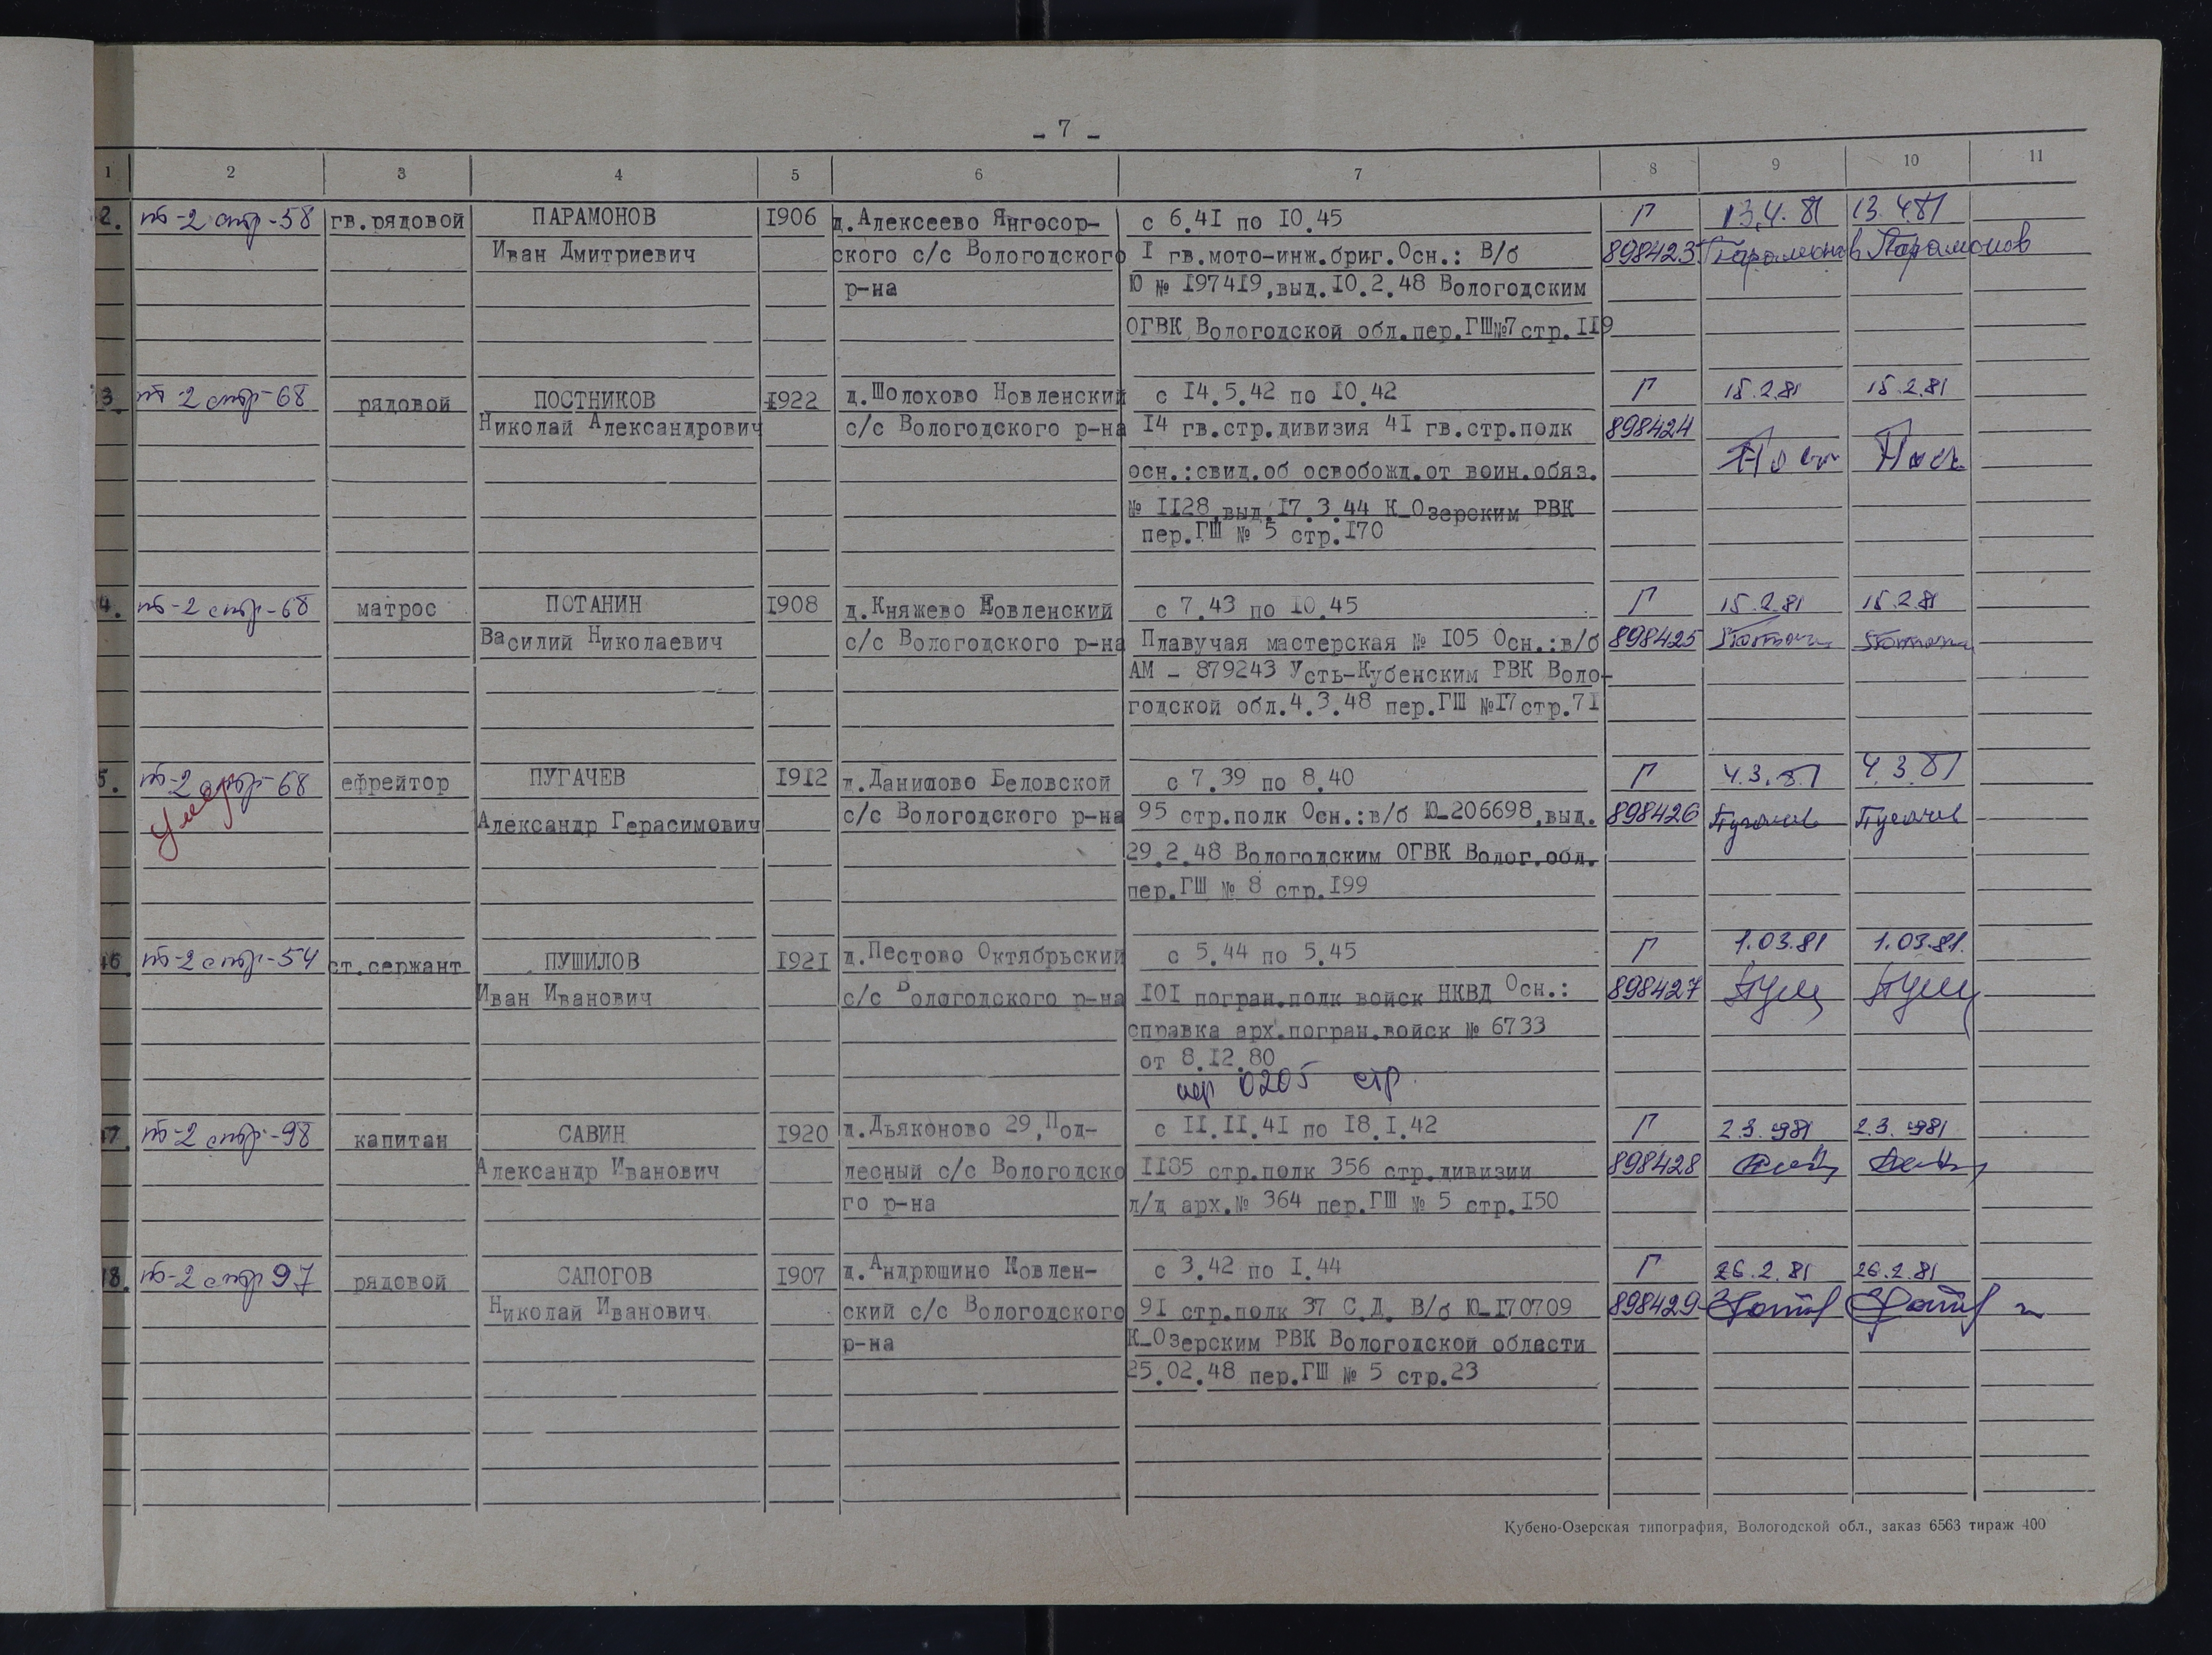 - 7 -
1 2 3 4 5 6 7 8 9 10 11
2. т-2 стр-58 гв.рядовой ПАРАМОНОВ 1906 д.Алексеево Янгосор- с 6.41 по 10.45 Г 13.4.81 13.4.81
Иван Дмитриевич ского с/с Вологодского I гв.мото-инж.бриг.Осн.: В/б 898423 Парамонов Парамонов
р-на Ю № 197419,выд.10.2.48 Вологодским
ОГВК Вологодской обл.пер.ГШ№7 стр.119
3 т-2 стр-68 рядовой ПОСТНИКОВ 1922 д.Шолохово Новленский с 14.5.42 по 10.42 Г 15.2.81 15.2.81
Николай Александрович с/с Вологодского р-на 14 гв.стр.дивизия 41 гв.стр.полк 898424
осн.:свид.об освобожд.от воин.обяз. Пост Пост
№ 1128,выд.17.3.44 К-Озерским РВК
пер.ГШ № 5 стр.170
4. т-2 стр-68 матрос ПОТАНИН 1908 д.Княжево Новленский с 7.43 по 10.45 Г 15.2.81 15.2.81
Василий Николаевич с/с Вологодского р-на Плавучая мастерская № 105 Осн.:в/б 898425 Потанин Потанин
АМ - 879243 Усть-Кубенским РВК Воло-
годской обл.4.3.48 пер.ГШ №17 стр.71
5. т-2 стр-68 ефрейтор ПУГАЧЕВ 1912 д.Данилово Беловской с 7.39 по 8.40 Г 4.3.81 4.3.81
Умер Александр Герасимович с/с Вологодского р-на 95 стр.полк Осн.:в/б Ю-206698,выд. 898426 Пугачев Пугачев
29.2.48 Вологодским ОГВК Волог.обл.
пер.ГШ № 8 стр.199
46 т-2 стр-54 ст.сержант ПУШИЛОВ 1921 д.Пестово Октябрьский с 5.44 по 5.45 Г 1.03.81 1.03.81.
Иван Иванович с/с Вологодского р-на 101 погран.полк войск НКВД Осн.: 898427 Пуш Пуш
справка арх.погран.войск № 6733
от 8.12.80
пер 0205 стр.
47 т-2 стр-98 капитан САВИН 1920 д.Дьяконово 29,Под- с 11.11.41 по 18.1.42 Г 2.3.1981 2.3.1981
Александр Иванович лесный с/с Вологодско 1185 стр.полк 356 стр.дивизии 898428
го р-на л/д арх.№ 364 пер.ГШ № 5 стр.150
48. т-2 стр 97 рядовой САПОГОВ 1907 д.Андрюшино Новлен- с 3.42 по 1.44 Г 26.2.81 26.2.81
Николай Иванович ский с/с Вологодского 91 стр.полк 37 С.Д. В/б Ю-170709 898429
р-на К-Озерским РВК Вологодской области
25.02.48 пер.ГШ № 5 стр.23
Кубено-Озерская типография, Вологодской обл., заказ 6563 тираж 400